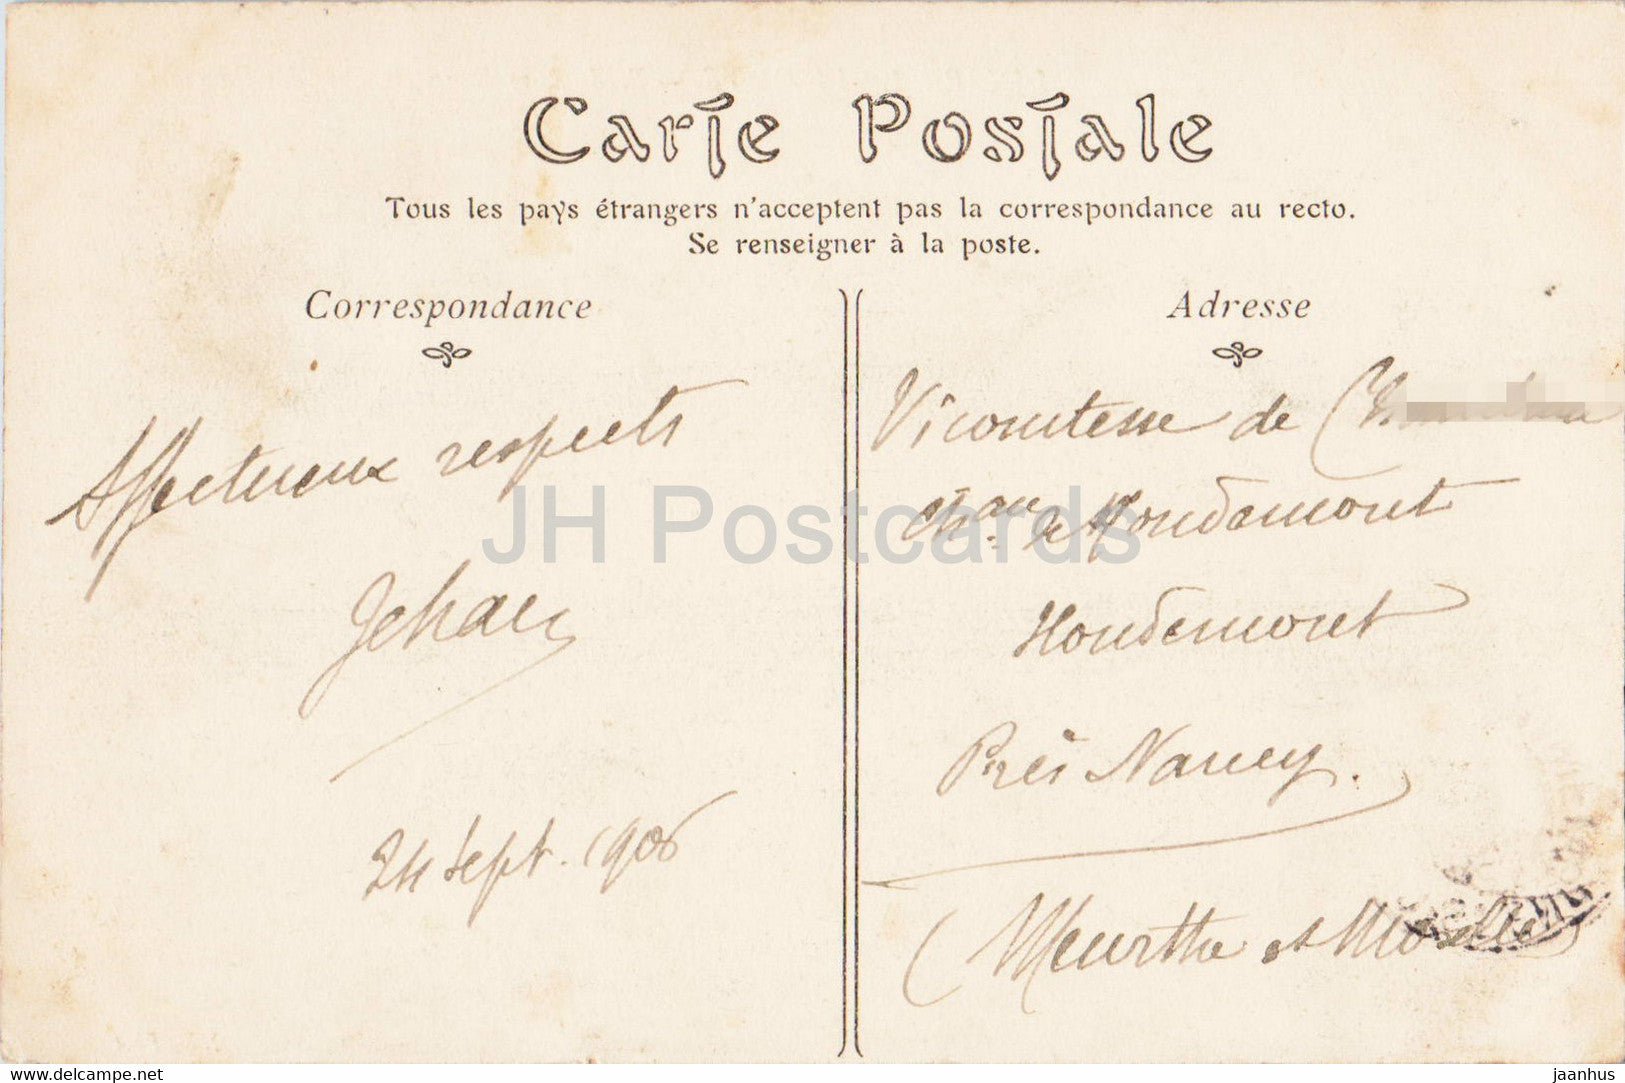 Carte Postale
Tous les pays étrangers n'acceptent pas la correspondance au recto.
Se renseigner à la poste.
Correspondance
Affectueux respects
Jehan
24 Sept. 1906
Adresse
Vicomtesse de
chau de Houdemont
Houdemont
Près Nancy.
(Meurthe et Moselle)
JH Postcards
www.delcampe.net
jaanhus